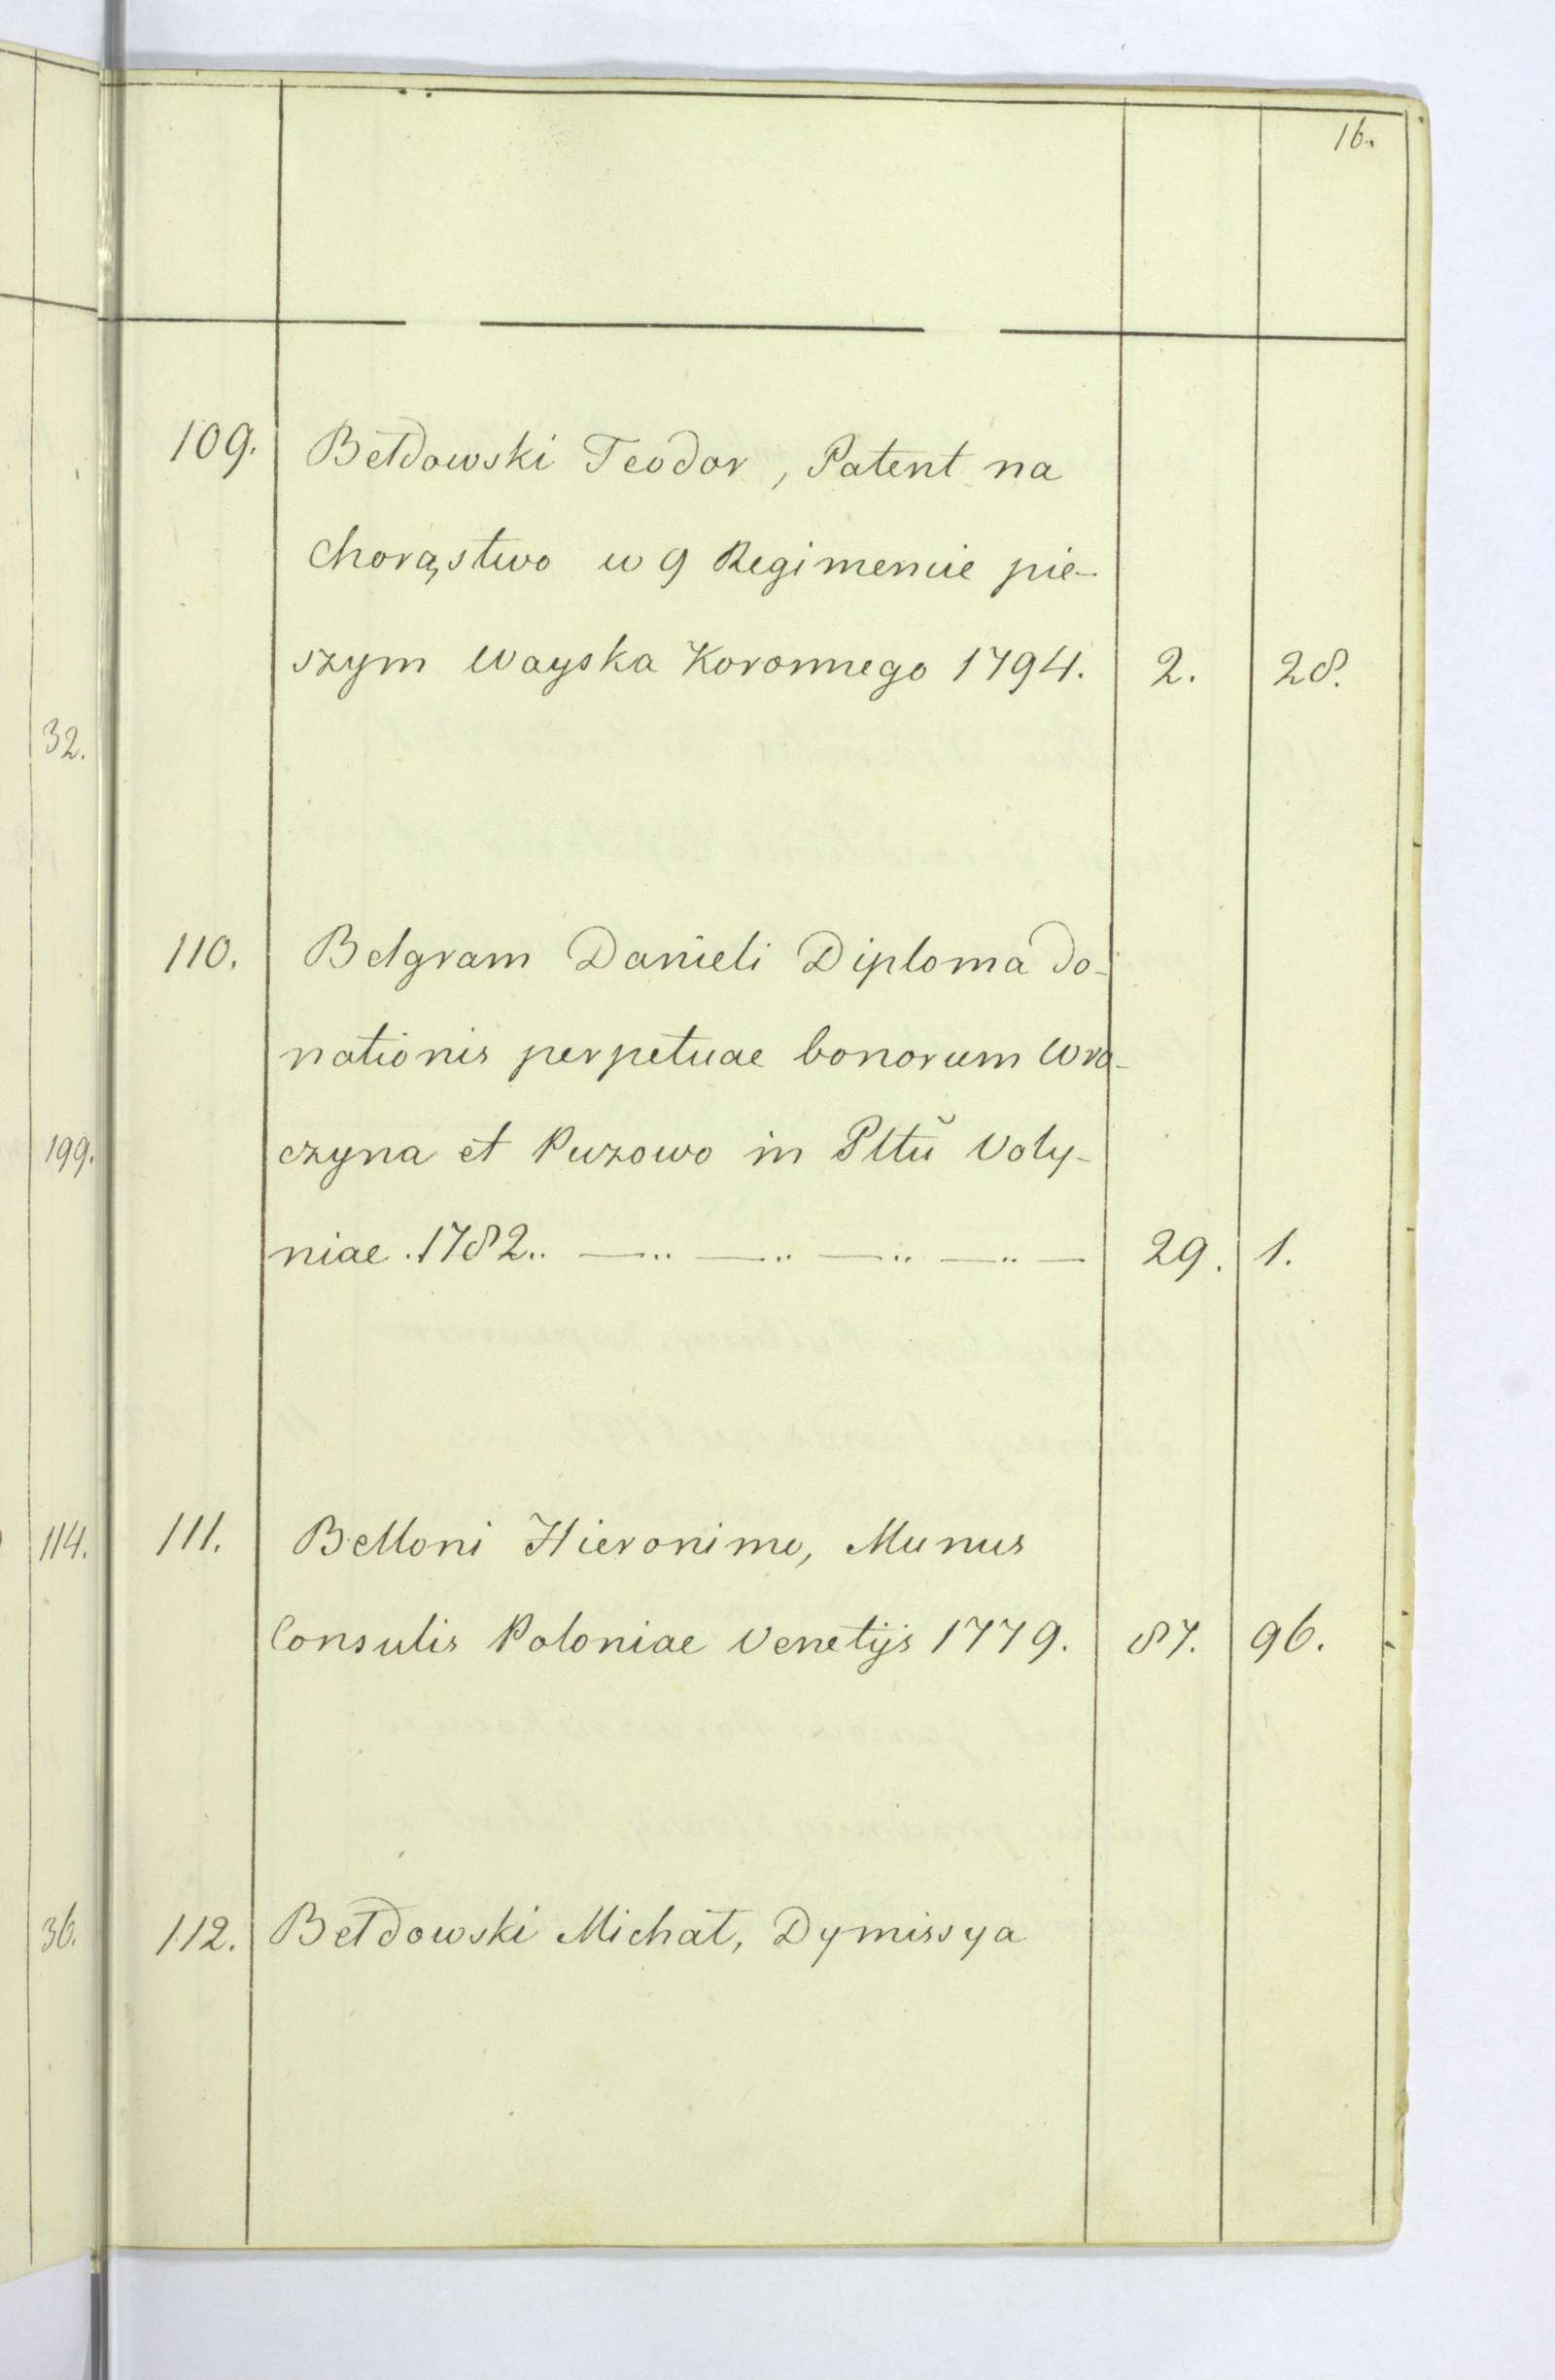 16.
109. Bełdowski Teodor, Patent na
Chorąstwo w 9 Regimencie pie-
szym Woyska Koronnego 1794. 2. 28.
32.
110. Belgram Danieli Diploma do-
nationis perpetuae bonorum Wro-
czyna et Puzowo in Pltũ Voly-
199.
niae .1782.. —..—..—..—..— 29. 1.
114. 111. Belloni Hieronimo, Munus
Consulis Poloniae Venetijs 1779. 87. 96.
36. 112. Bełdowski Michał, Dymissya